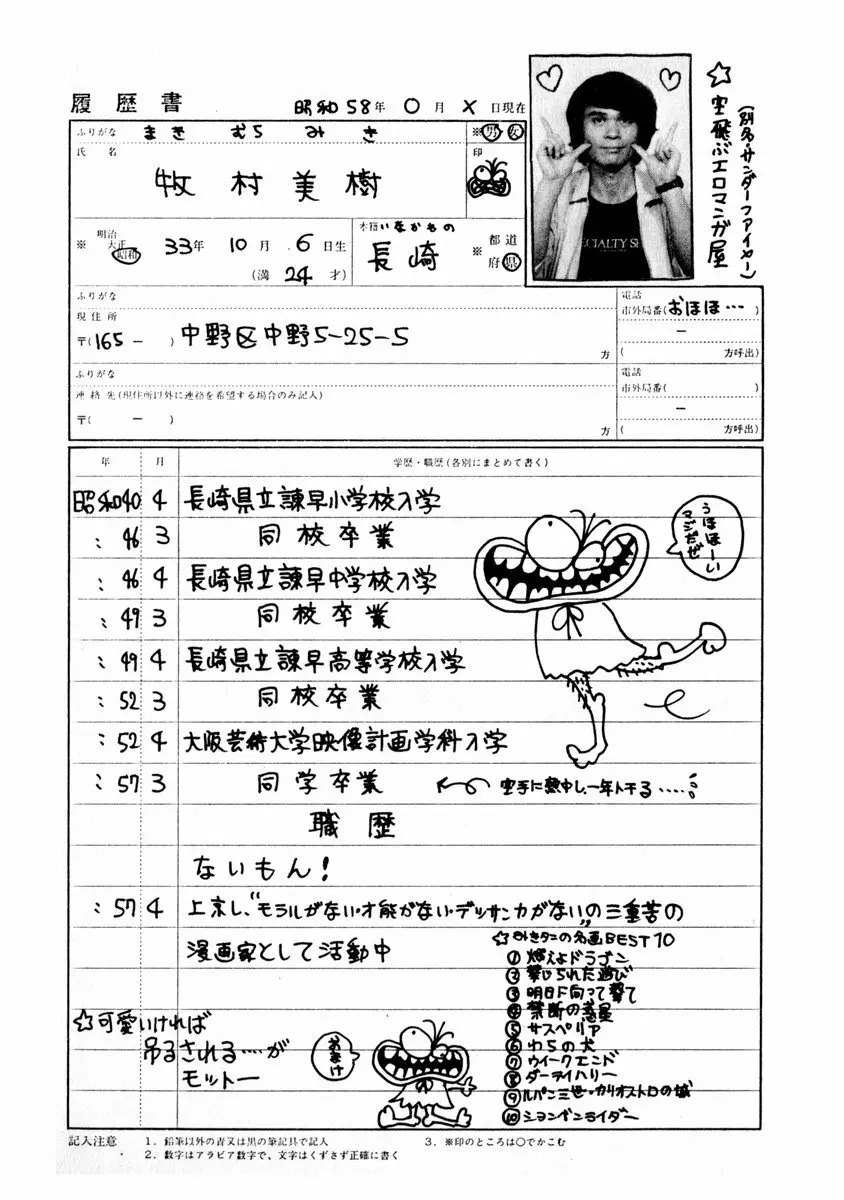 履歴書
昭和58年 〇月 ×日現在
ふりがな まき むら みき
※男・女
氏 名
牧村美樹
印
※ 明治 大正 昭和 33年 10月 6日生
(満 24 才)
本籍 いなかもの
長崎 ※ 都道府県
☆空飛ぶエロマンガ屋
(別名・サンダーファイヤー)
ふりがな
現住所
〒(165 - ) 中野区中野5-25-5
方
電話
市外局番(おほほ…)
—
( 方呼出)
ふりがな
連絡先(現住所以外に連絡を希望する場合のみ記入)
〒( - )
方
電話
市外局番( )
—
( 方呼出)
年 月 学歴・職歴(各別にまとめて書く)
昭和40 4 長崎県立諫早小学校入学
: 46 3 同校卒業
: 46 4 長崎県立諫早中学校入学
: 49 3 同校卒業
: 49 4 長崎県立諫早高等学校入学
: 52 3 同校卒業
: 52 4 大阪芸術大学映像計画学科入学
: 57 3 同学卒業
空手に熱中し、一年トチる……
職歴
ないもん!
: 57 4 上京し、"モラルがない・才能がない・デッサン力がない"の三重苦の
漫画家として活動中
うほほーい
マジだぜ
☆みきタニの名画BEST10
①燃えよドラゴン
②禁じられた遊び
③明日に向って撃て
④禁断の惑星
⑤サスペリア
⑥わらの犬
⑦ウイークエンド
⑧ダーティハリー
⑨ルパン三世・カリオストロの城
⑩シヨンベンライダー
☆可愛いければ
吊るされる…が
モットー
おまけ
記入注意 1. 鉛筆以外の青又は黒の筆記具で記入 3. ※印のところは〇でかこむ
2. 数字はアラビア数字で、文字はくずさず正確に書く